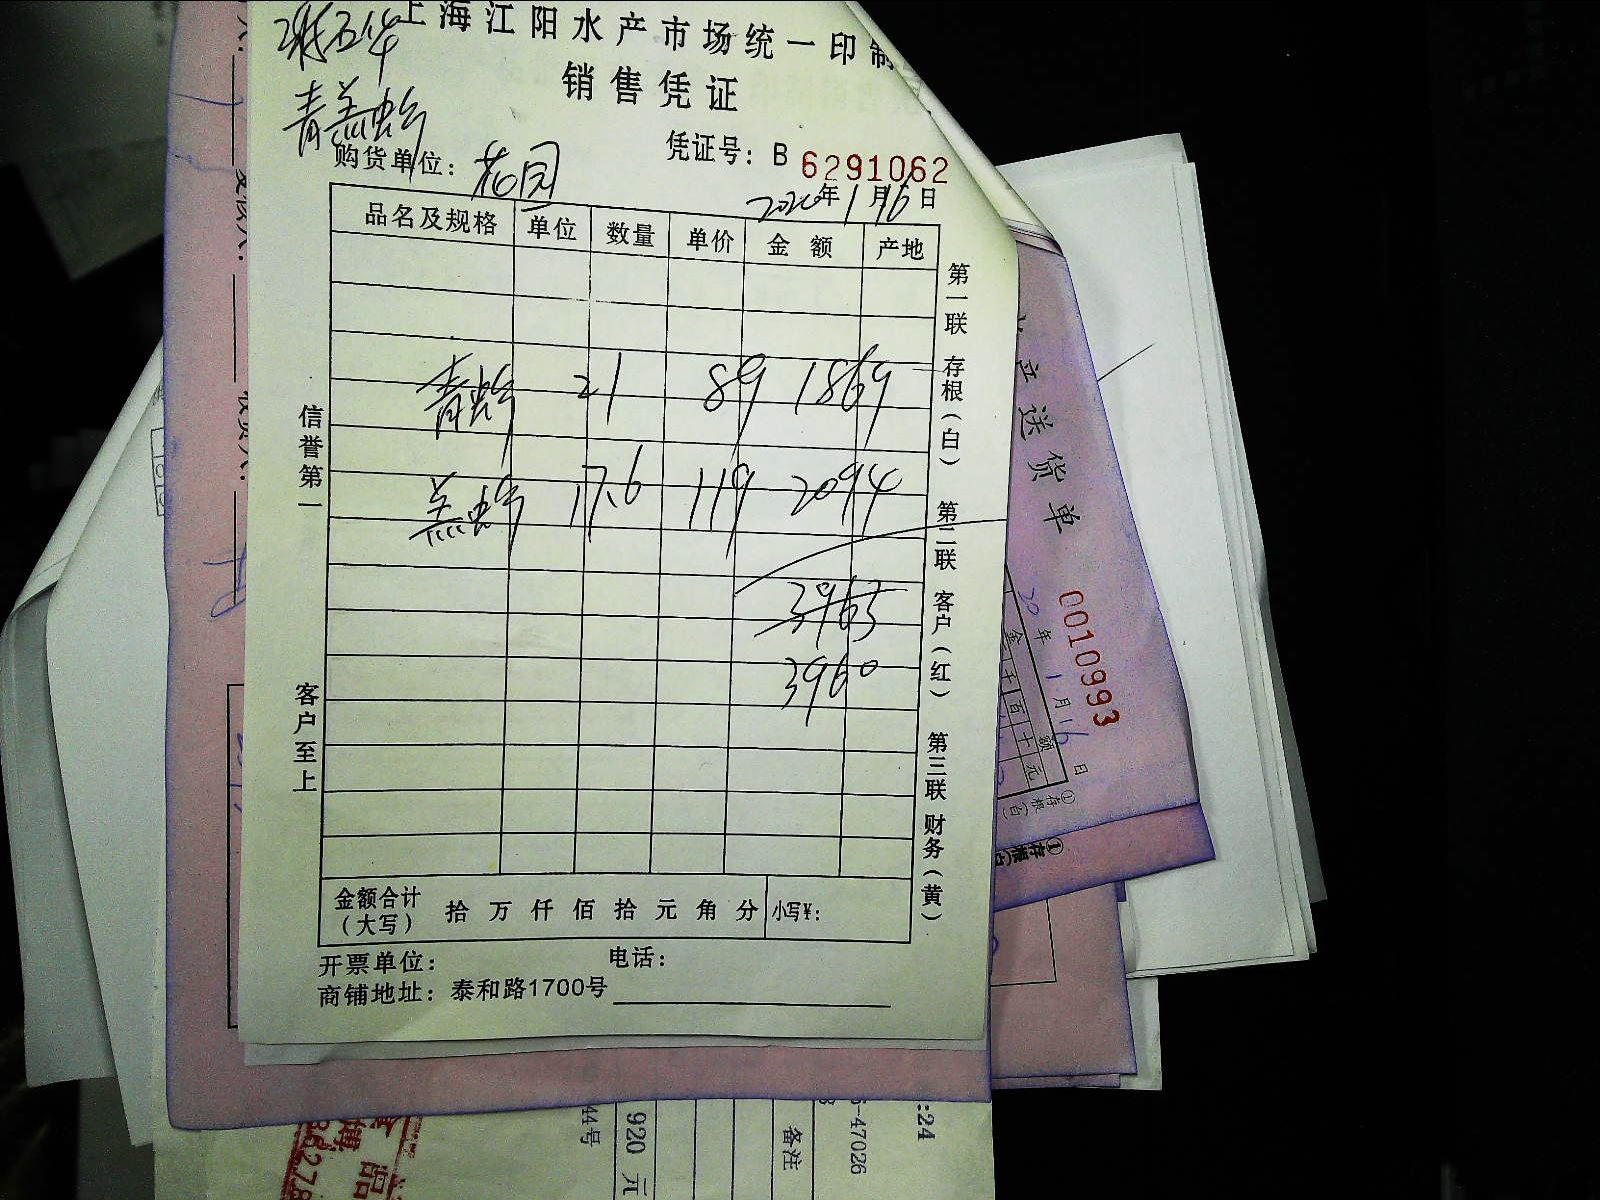 上海江阳水产市场统一印制
销售凭证
青羔虾
购货单位：花园
凭证号：B 6291062
2020年1月16日
品名及规格 单位 数量 单价 金额 产地
青虾 21 89 1869
羔虾 17.6 119 2094
3963
3960
信誉第一
客户至上
第一联 存根（白）
第二联 客户（红）
第三联 财务（黄）
金额合计（大写） 拾 万 仟 佰 拾 元 角 分 小写¥：
开票单位： 电话：
商铺地址：泰和路1700号
送货单
0010993
20年1月16日
金额
千百十元
①存根(白)
①存根(白
44号
920 元
备注
5-47026
:24